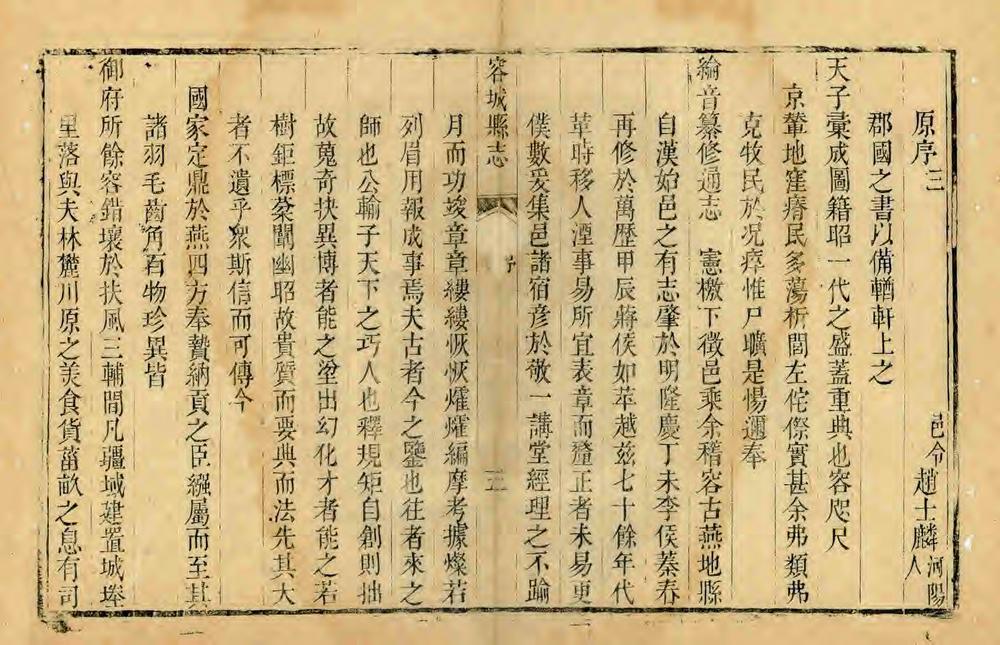 原序三
邑令趙士麟河陽人
郡國之書以備輶軒上之
天子彙成圖籍昭一代之盛蓋重典也容咫尺
京輦地窪瘠民多蕩析閭左侘傺實甚余弗類弗
克牧民於况瘁惟尸曠是惕邇奉
綸音纂修通志 憲檄下徵邑乘余稽容古燕地縣
自漢始邑之有志肇於明隆慶丁未李侯蓁春
再修於萬歷甲辰蔣侯如苹越茲七十餘年代
革時移人湮事易所宜表章而釐正者未易更
僕數爰集邑諸宿彥於敬一講堂經理之不踰
容城縣志
序
三
月而功竣章章縷縷恢恢爟爟編摩考據燦若
列眉用報成事焉夫古者今之鑒也往者來之
師也公輸子天下之巧人也釋規矩自創則拙
故蒐奇抉異博者能之塗出幻化才者能之若
樹鉅標棻闡幽昭故貴質而要典而法先其大
者不遺乎衆斯信而可傳今
國家定鼎於燕四方奉贄納貢之臣繈屬而至其
諸羽毛齒角百物珍異皆
御府所餘容錯壤於扶風三輔間凡疆域建置城埄
里落與夫林麓川原之美食貨菑畝之息有司